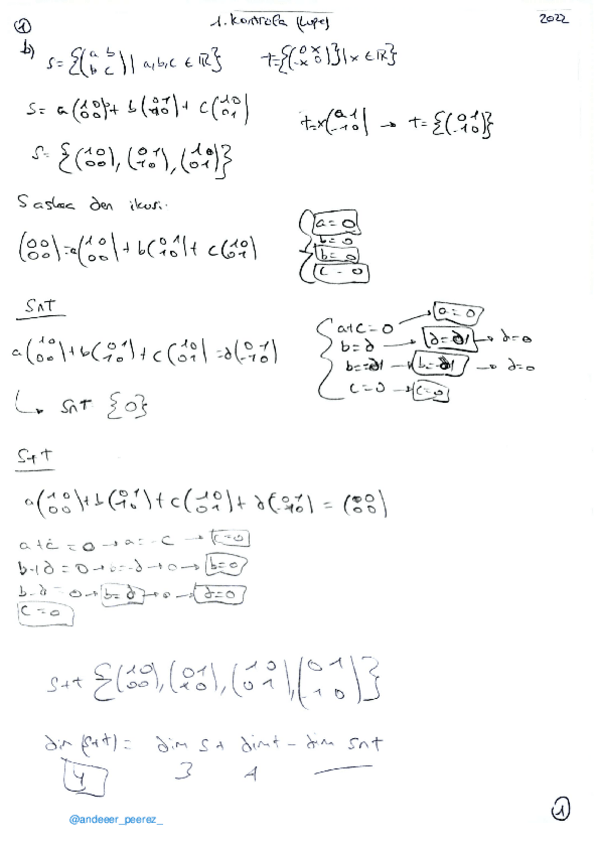 ① 1. Kontrola (Lupe) 2022
b) S = {(a b / b c) | a,b,c ∈ ℝ} T = {(0 x / -x 0)} | x ∈ ℝ}
S = a(1 0 / 0 0) + b(0 1 / 1 0) + c(1 0 / 0 1) T = x(0 1 / -1 0) → T = {(0 1 / -1 0)}
S = {(1 0 / 0 0), (0 1 / 1 0), (1 0 / 0 1)}
S askea den ikusi.
(0 0 / 0 0) = a(1 0 / 0 0) + b(0 1 / 1 0) + c(1 0 / 0 1)
a = 0
b = 0
b = 0
c = 0
S∩T
a(1 0 / 0 0) + b(0 1 / 1 0) + c(1 0 / 0 1) = d(0 1 / -1 0)
a+c = 0 → a = 0
b = d → → d = 0
→ → d = 0
c = 0 → c = 0
↳ S∩T {0}
S+T
a(1 0 / 0 0) + b(0 1 / 1 0) + c(1 0 / 0 1) + d(0 1 / -1 0) = (0 0 / 0 0)
a+c = 0 → a = -c → c = 0
b+d = 0 → b = -d → 0 → b = 0
b-d = 0 → b = d → 0 → d = 0
c = 0
S+T {(1 0 / 0 0), (0 1 / 1 0), (1 0 / 0 1), (0 1 / -1 0)}
dim (S+T) = dim S + dim T - dim S∩T
4 3 1
@andeeer_peerez_
①